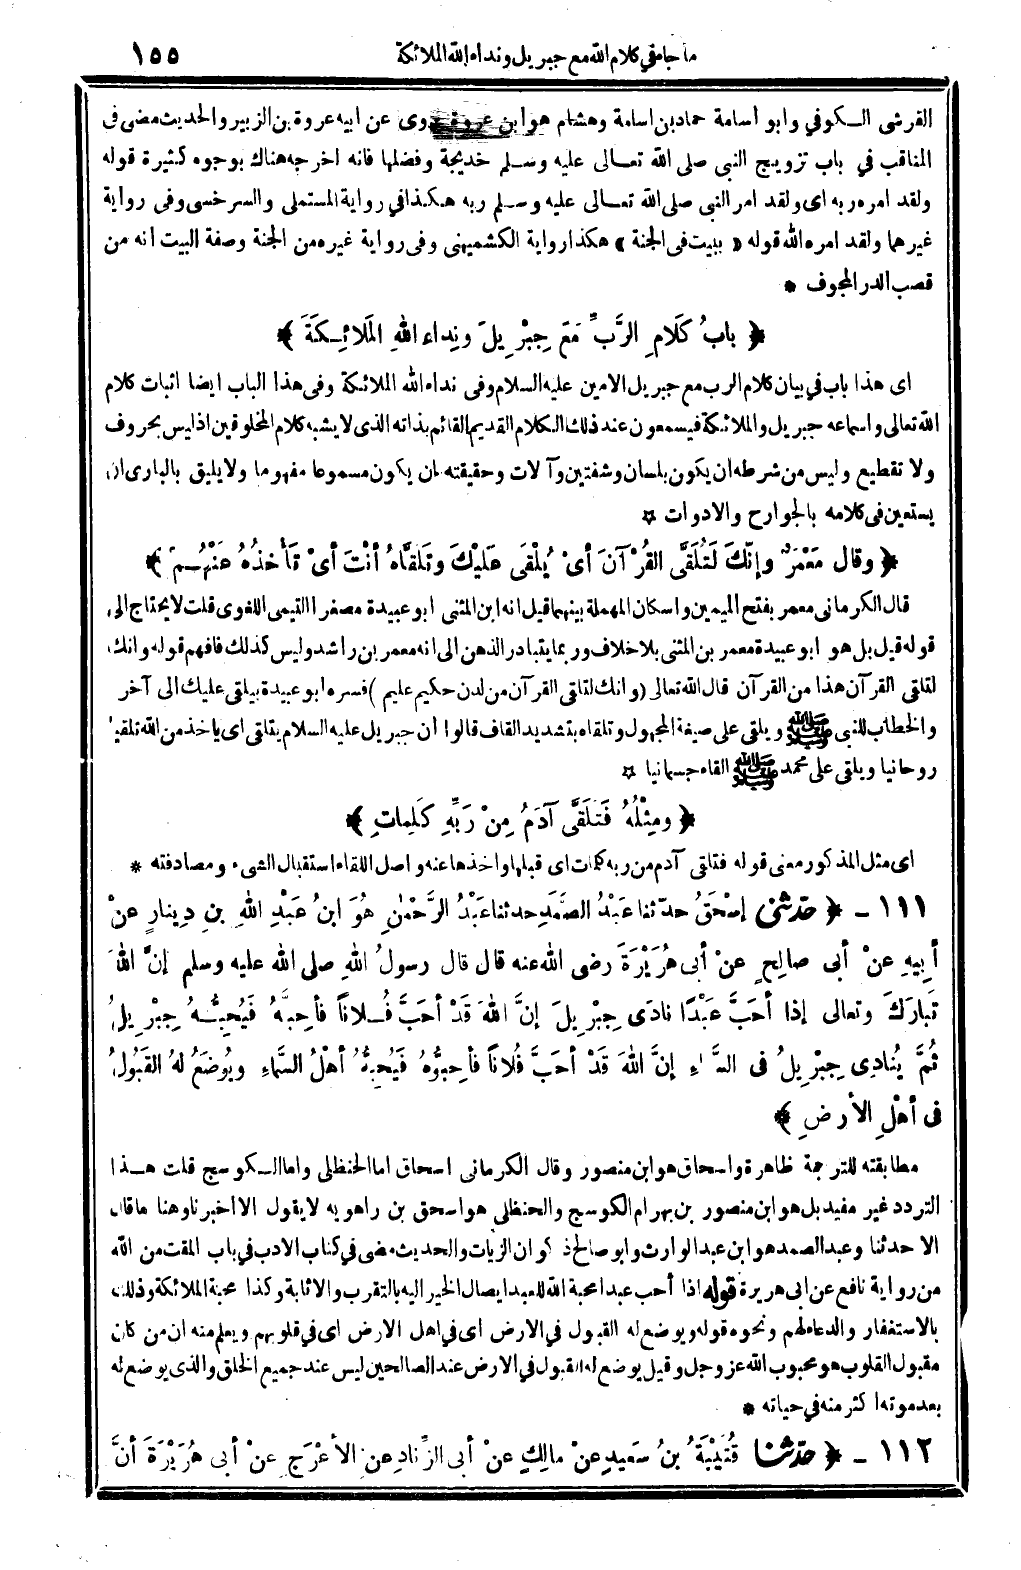 ما جاء في كلام الله مع جبريل ونداء الله الملائكة ١٥٥
القرشى الكوفي وابو أسامة حماد بن اسامة وهشام هو ابن عروة يروى عن ابيه عروة بن الزبير والحديث مضى فى
المناقب في باب تزويج النبى صلى الله تعالى عليه وسلم خديجة وفضلها فانه اخرجه هناك بوجوه كثيرة قوله
ولقد امره ربه اى ولقد امر النبى صلى الله تعالى عليه وسلم ربه هكذا في رواية المستملى والسرخسى وفى رواية
غيرهما ولقد امره الله قوله « ببيت فى الجنة » هكذا رواية الكشميهنى وفى رواية غيره من الجنة وصفة البيت انه من
قصب الدر المجوف *
﴿ بابُ كَلَامِ الرَّبِّ مَعَ جِبْرِيلَ ونِداء اللهِ المَلَائِكَةَ ﴾
اى هذا باب في بيان كلام الرب مع جبريل الامين عليه السلام وفى نداء الله الملائكة وفى هذا الباب ايضا اثبات كلام
الله تعالى واسماعه جبريل والملائكة فيسمعون عند ذلك الكلام القديم القائم بذاته الذى لا يشبه كلام المخلوقين اذ ليس بحروف
ولا تقطيع وليس من شرطه ان يكون بلسان وشفتين وآلات وحقيقته ان يكون مسموعا مفهوما ولا يليق بالبارى ان
يستعين فى كلامه بالجوارح والادوات ☆
﴿ وقال مَعْمَرٌ وإنَّكَ لَتُلَقَّى القُرْآنَ أىْ يُلْقَى عَلَيْكَ وتَلَقَّاهُ أنْتَ أىْ تَأخذُهُ عَنْهُمْ ﴾
قال الكرمانى معمر بفتح الميمين واسكان المهملة بينهما قيل انه ابن المثنى ابو عبيدة مصغرا التيمى اللغوى قلت لا يحتاج الى
قوله قيل بل هو ابو عبيدة معمر بن المثنى بلا خلاف وربما يتبادر الذهن الى انه معمر بن راشد وليس كذلك فافهم قوله وانك
لتلقى القرآن هذا من القرآن قال الله تعالى (وانك لتلقى القرآن من لدن حكيم عليم) فسره ابو عبيدة بيلقى عليك الى آخر
والخطاب للنبى ﷺ ويلقى على صيغة المجهول وتلقاه بتشديد القاف قالوا ان جبريل عليه السلام يتلقى اى ياخذ من الله تلقيا
روحانيا ويلقى على محمد ﷺ القاء جسمانيا ☆
﴿ ومِثْلُهُ فَتَلَقَّى آدَمُ مِنْ رَبِّهِ كَلِماتٍ ﴾
اى مثل المذكور معنى قوله فتلقى آدم من ربه كلمات اى قبلها واخذها عنه واصل اللقاء استقبال الشىء ومصادفته *
١١١ - ﴿ حدّثنى إسْحَقُ حدثنا عَبْدُ الصَّمَدِ حدثنا عَبْدُ الرَّحْمٰنِ هُوَ ابنُ عَبْدِ اللهِ بنِ دِينارٍ عنْ
أبِيهِ عنْ أبى صالِحٍ عنْ أبى هُرَيْرَةَ رضى الله عنه قال قال رسولُ اللهِ صلى الله عليه وسلم إنَّ اللهَ
تَبارَكَ وتعالى إذا أحَبَّ عَبْدًا نادَى جِبْرِيلَ إنَّ اللهَ قَدْ أحَبَّ فُلاناً فأحِبَّهُ فَيُحِبُّهُ جِبْرِيلُ
ثُمَّ يُنادِى جِبْرِيلُ فى السَّماءِ إنَّ اللهَ قَدْ أحَبَّ فُلاناً فأحِبُّوهُ فَيُحِبُّهُ أهْلُ السَّماءِ ويُوضَعُ لهُ القَبُولُ
فى أهْلِ الأرضِ ﴾
مطابقته للترجمة ظاهرة واسحاق هو ابن منصور وقال الكرمانى اسحاق اما الحنظلى واما الكوسج قلت هذا
التردد غير مفيد بل هو ابن منصور بن بهرام الكوسج والحنظلى هو اسحق بن راهويه لا يقول الا اخبرنا وهنا ما قال
الا حدثنا وعبد الصمد هو ابن عبد الوارث وابو صالح ذكوان الزيات والحديث مضى في كتاب الادب في باب المقت من الله
من رواية نافع عن ابى هريرة قوله اذا أحب عبدا محبة الله للعبد ايصال الخير اليه بالتقرب والاثابة وكذا محبة الملائكة وذلك
بالاستغفار والدعاء لهم ونحوه قوله ويوضع له القبول في الارض اى في اهل الارض اى في قلوبهم ويعلم منه ان من كان
مقبول القلوب هو محبوب الله عز وجل وقيل يوضع له القبول في الارض عند الصالحين ليس عند جميع الخلق والذى يوضع له
بعد موته اكثر منه في حياته *
١١٢ - ﴿ حدّثنا قُتَيْبَةُ بنُ سَعِيدٍ عنْ مالِكٍ عنْ أبى الزِّنادِ عنِ الأعْرَجِ عنْ أبى هُرَيْرَةَ أنَّ